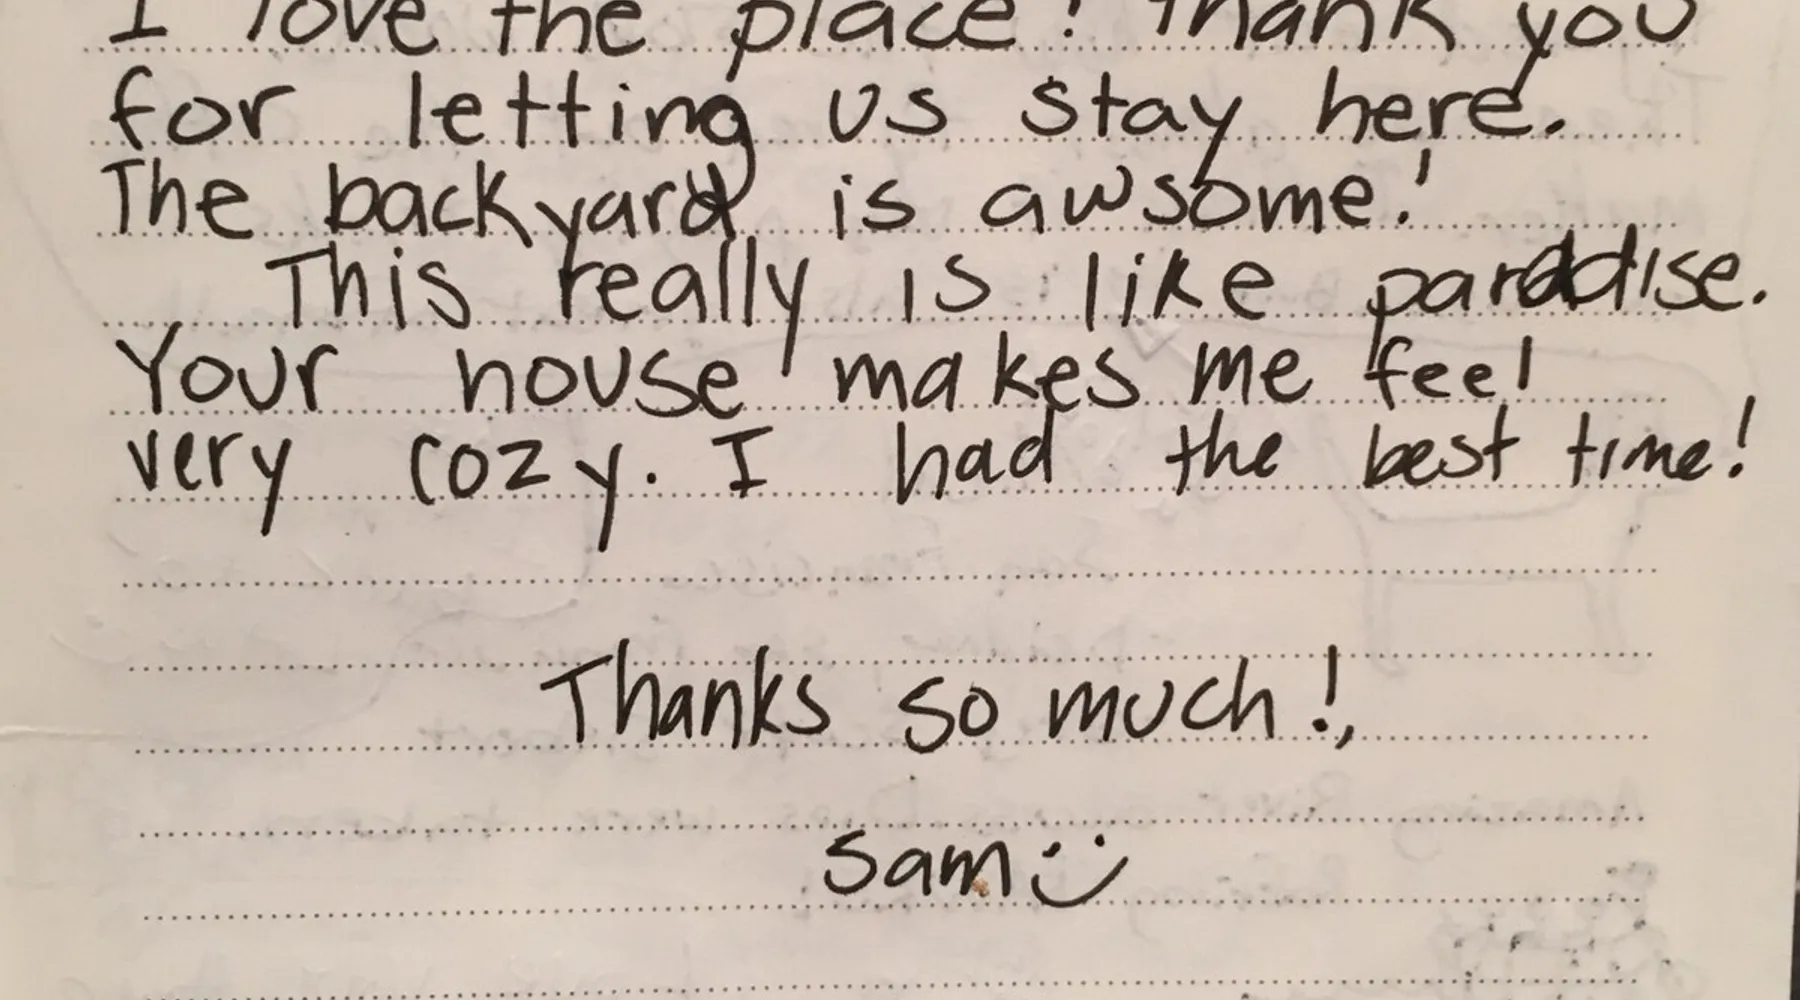 I love the place! Thank you
for letting us stay here.
The backyard is awsome!
This really is like paradise.
Your house makes me feel
very cozy. I had the best time!
Thanks so much!,
Sam